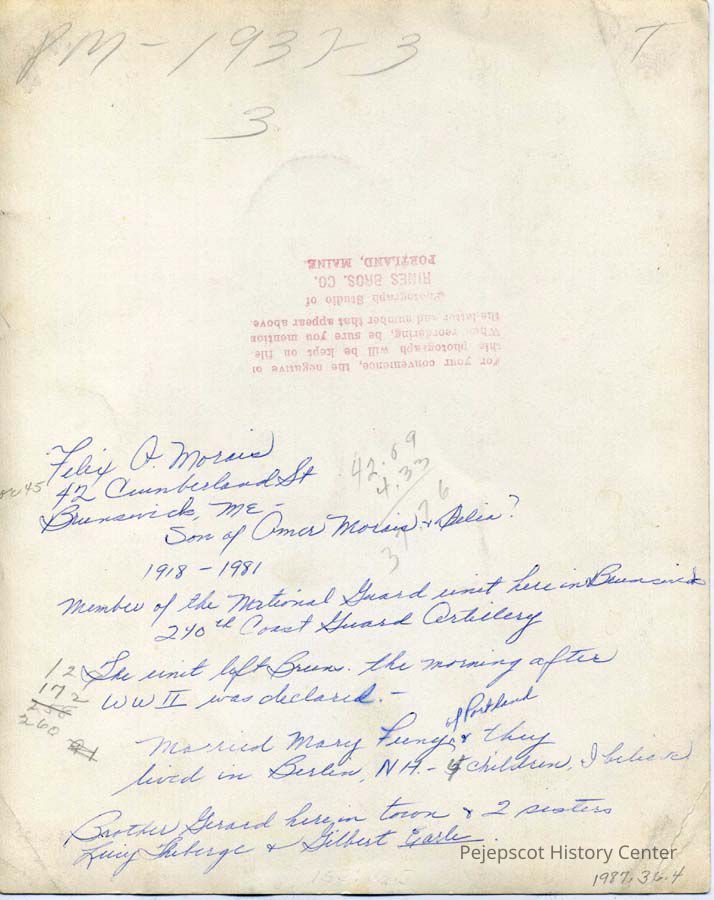 PM-1937-3
T
3
For your convenience, the negative of
this photograph will be kept on file.
When reordering, be sure you mention
the letter and number that appear above.
Photograph Studio of
RINES BROS. CO.
PORTLAND, MAINE
Felix O. Morais
or 45
42 Cumberland St
Brunswick, ME-
Son of Omer Morais & Delia?
42.09
4.33
37.76
1918-1981
Member of the National Guard unit here in Brunswick
240th Coast Guard Artillery
The unit left Bruns. the morning after
WW II was declared.-
12
172
260
of Portland
Married Mary & they
lived in Berlin, NH.- 4 children, I believe
Brother Gerard here in town & 2 sisters
Lucy Theberge & Gilbert Earle.
Pejepscot History Center
1987.36.4